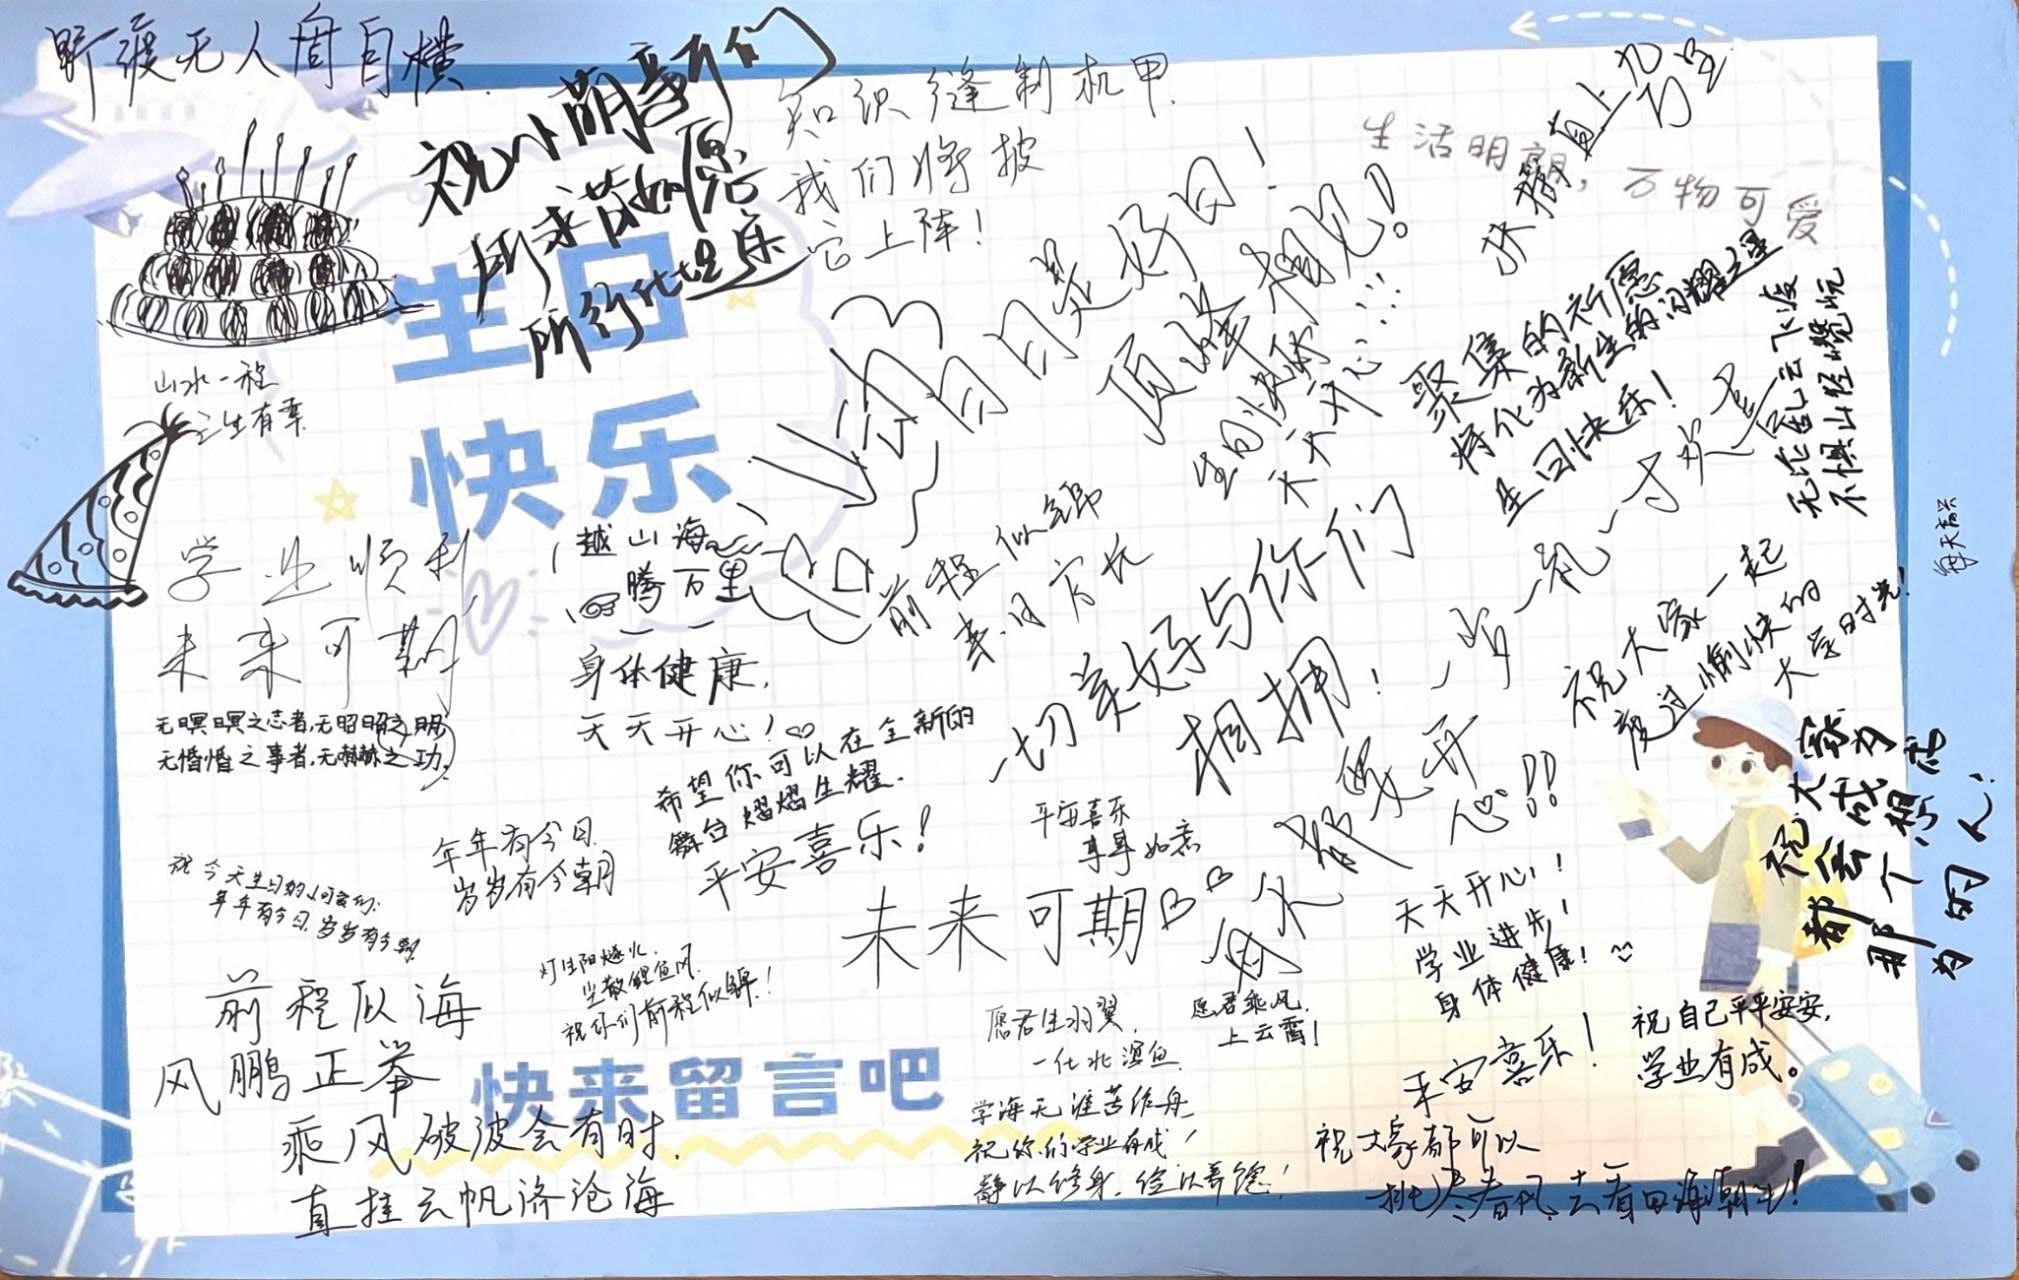 野渡无人舟自横.
祝小萌新们
所求皆如愿
所行化坦
知识缝制机甲,
我们将披
它上阵!
扶摇直上九万里
生活明朗,
万物可爱
日日是好日!
顶峰相见!
生日快乐
天天开心!!!
聚集的祈愿
将化为新生的闪耀之星
生日快乐!
无论乱云飞渡
不惧山怪嶙峋
每天高兴
生日
快乐
山水一程
三生有幸
学业顺利
未来可期
越山海
腾万里
身体健康,
天天开心!
前程似锦
来日方长
一切美好与你们
相拥!
祝大家一起
度过愉快的
大学时光!
无暝暝之志者,无昭昭之明
无惛惛之事者,无赫赫之功.
希望你可以在全新的
舞台熠熠生耀.
平安喜乐!
年年有今日
岁岁有今朝
祝今天生日的
年年有今日,岁岁有今朝
平安喜乐
事事如意
未来可期
每天都要开
心!!
祝大家
都会成为
那个想成
为的人!
天天开心!
学业进步!
身体健康!
前程似海
风鹏正举
乘风破浪会有时,
直挂云帆济沧海
灯生阳燧火,
尘散鲤鱼风.
祝你们前程似锦!
快来留言吧
愿君生羽翼,
一化北溟鱼
愿君乘风,
上云霄!
学海无涯苦作舟
祝你们学业有成!
静以修身,俭以养德!
平安喜乐!
祝自己平平安安,
学业有成。
祝大家都可以
春风,去看